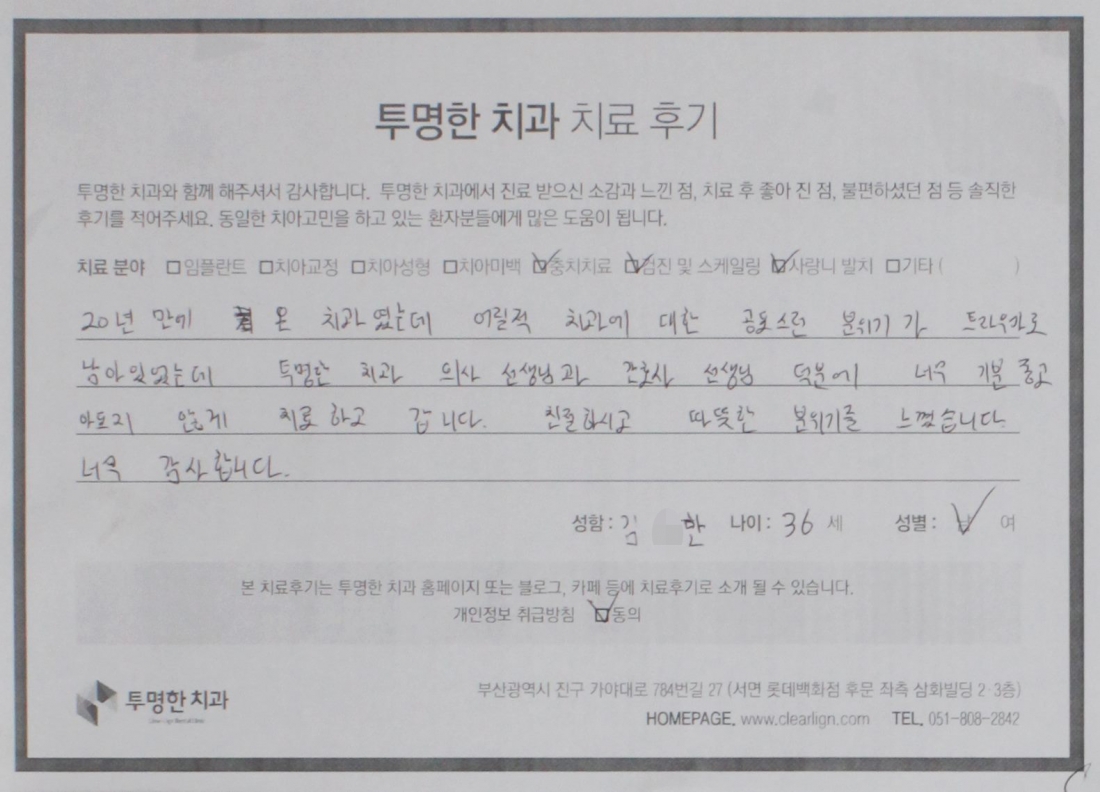 투명한 치과 치료 후기
투명한 치과와 함께 해주셔서 감사합니다. 투명한 치과에서 진료 받으신 소감과 느낀 점, 치료 후 좋아 진 점, 불편하셨던 점 등 솔직한
후기를 적어주세요. 동일한 치아고민을 하고 있는 환자분들에게 많은 도움이 됩니다.
치료 분야 □임플란트 □치아교정 □치아성형 □치아미백 ☑충치치료 ☑검진 및 스케일링 ☑사랑니 발치 □기타 ( )
20년 만에 온 치과였는데 어릴적 치과에 대한 공포스런 분위기가 트라우마로
남아있었는데 투명한 치과 의사 선생님과 간호사 선생님 덕분에 너무 기분 좋고
아프지 않게 치료하고 갑니다. 친절하시고 따뜻한 분위기를 느꼈습니다.
너무 감사합니다.
성함 : 김 한 나이 : 36 세 성별 : 남 여
본 치료후기는 투명한 치과 홈페이지 또는 블로그, 카페 등에 치료후기로 소개 될 수 있습니다.
개인정보 취급방침 ☑동의
투명한 치과
부산광역시 진구 가야대로 784번길 27 (서면 롯데백화점 후문 좌측 삼화빌딩 2·3층)
HOMEPAGE. www.clearlign.com TEL. 051-808-2842